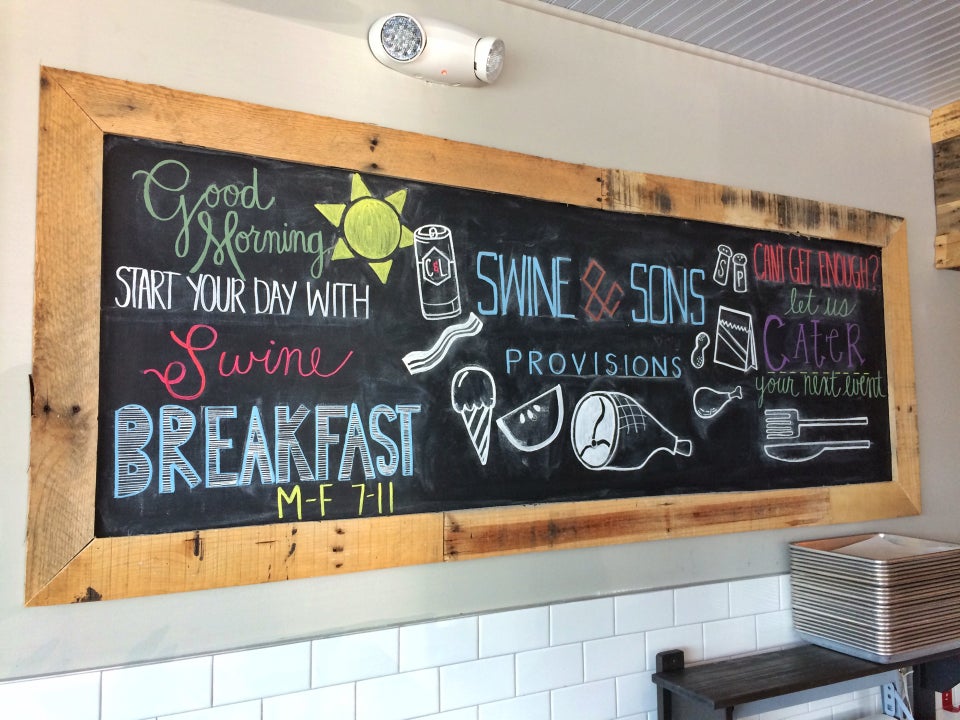 Good
Morning
START YOUR DAY WITH
Swine
BREAKFAST
M-F 7-11
SWINE & SONS
PROVISIONS
S P
CAN'T GET ENOUGH?
let us
CateR
your next event